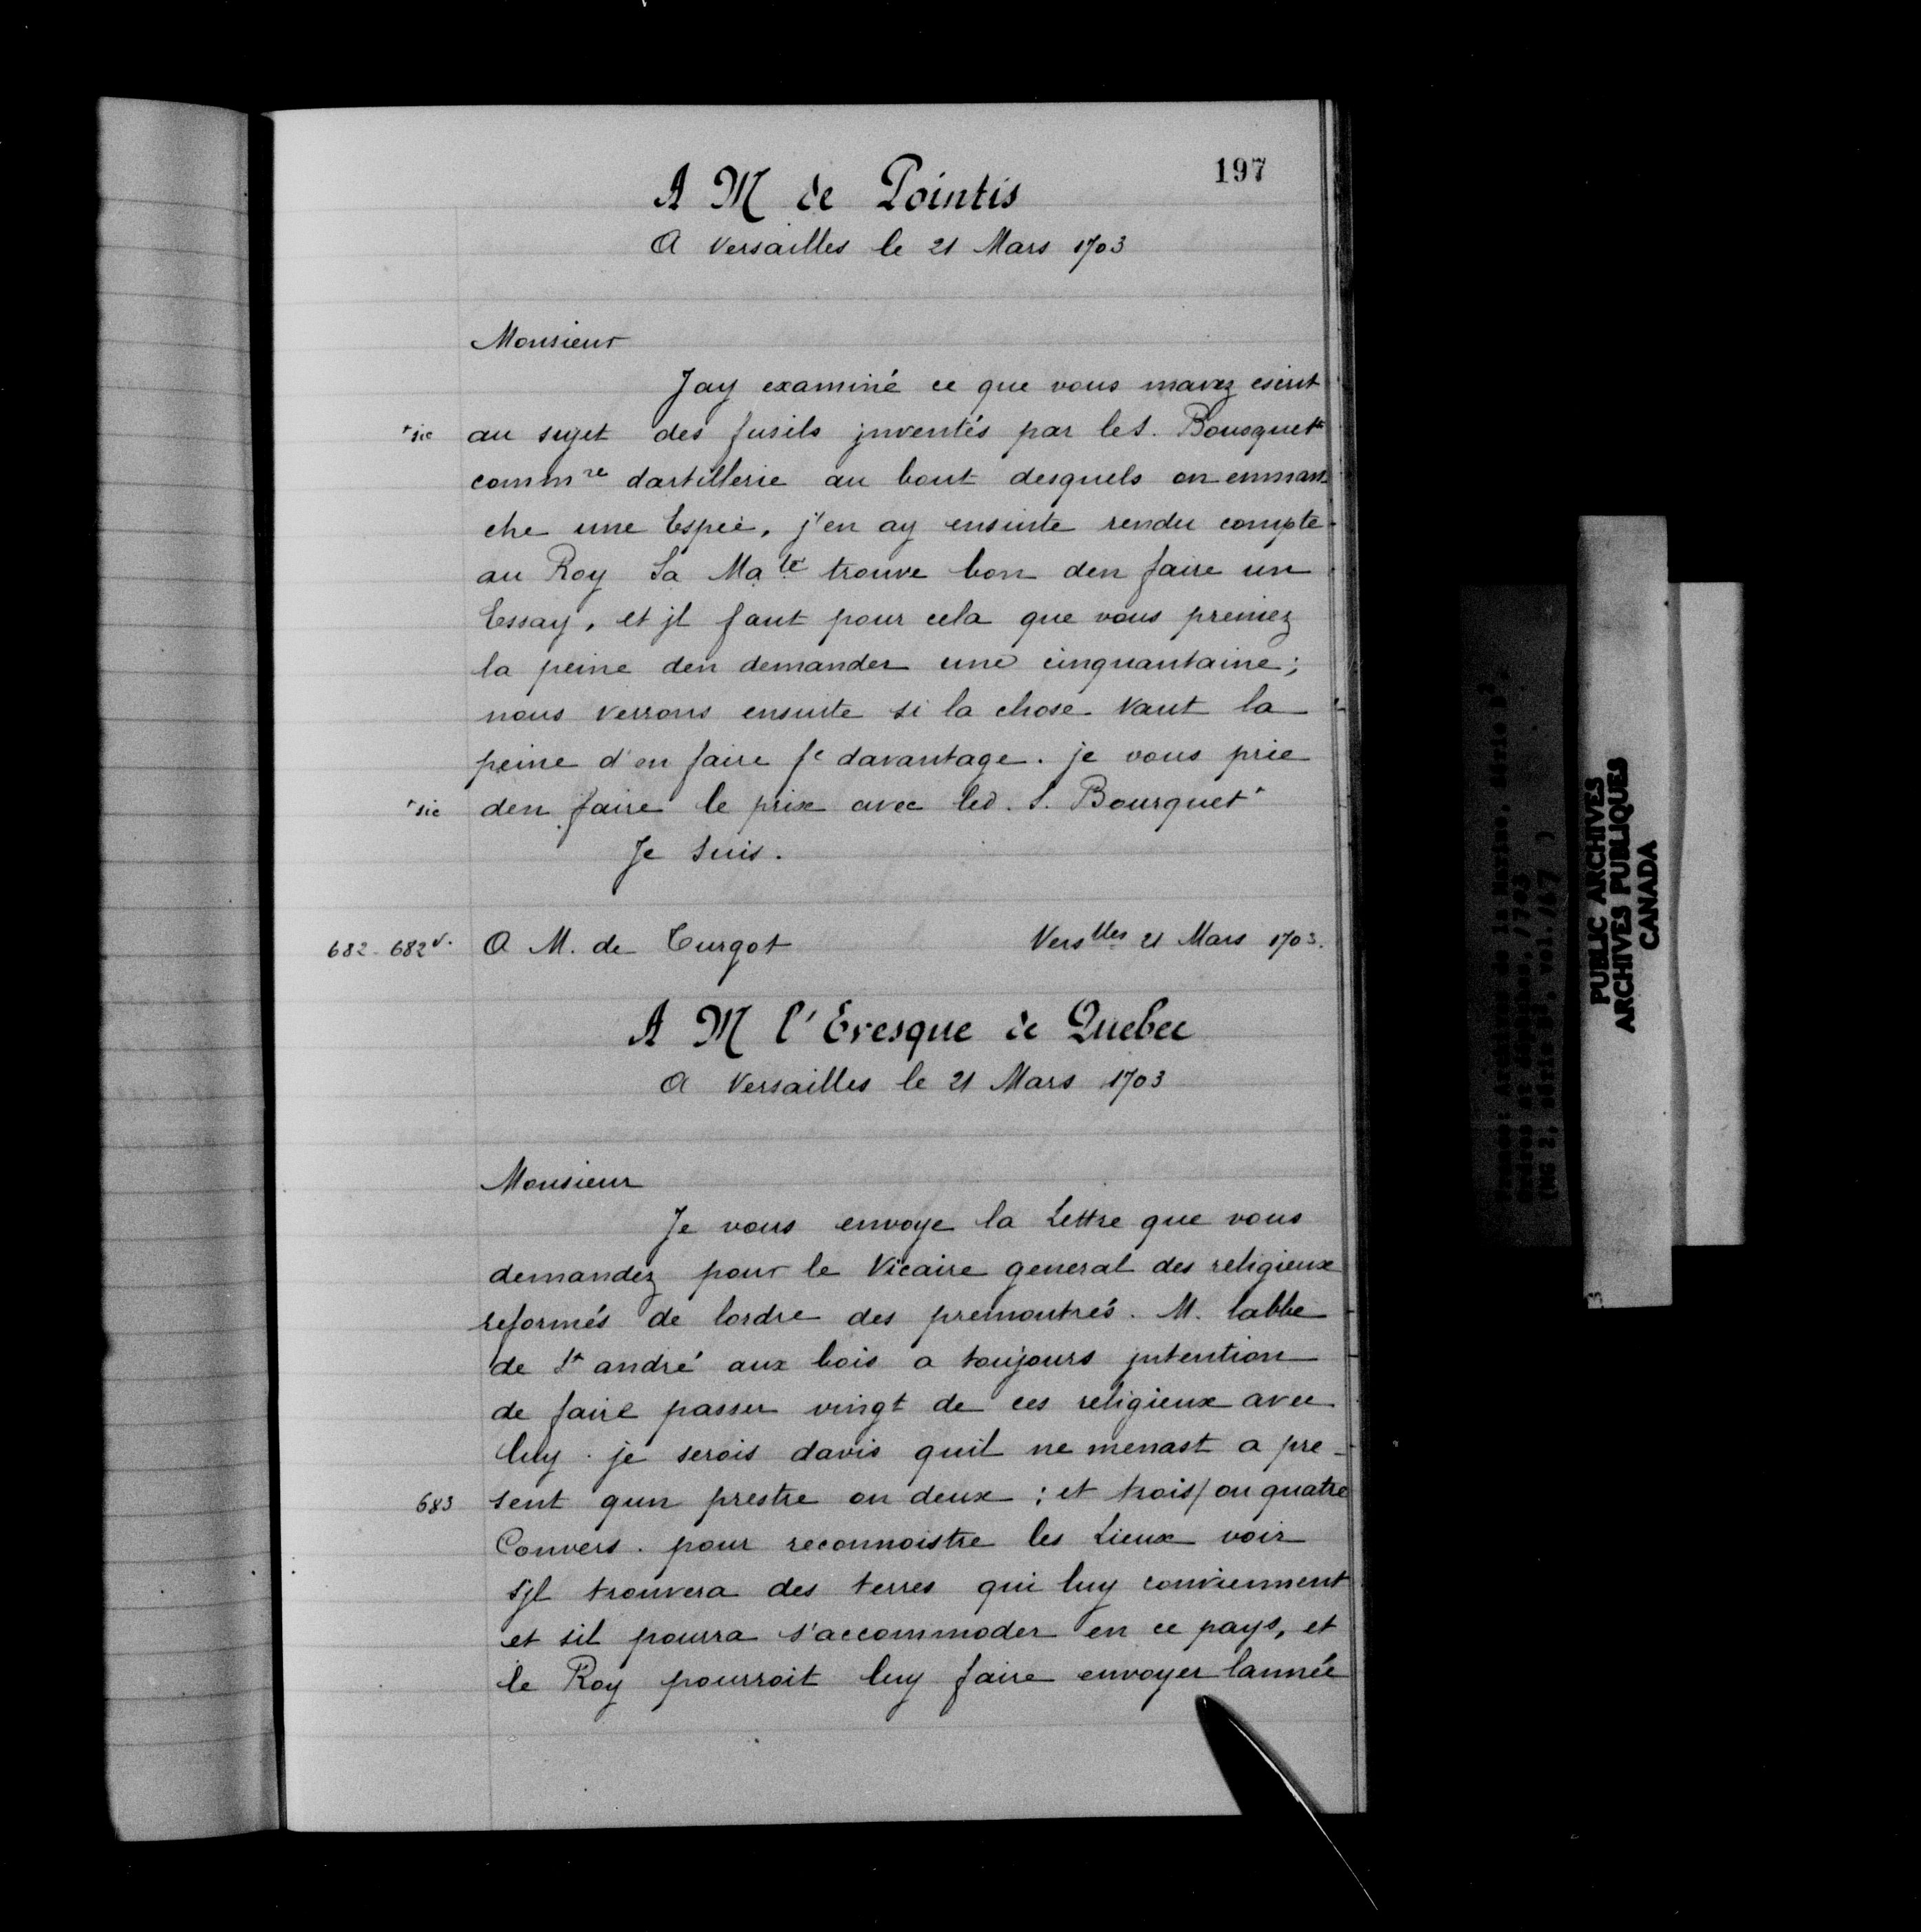 197
A M de Pointis
A Versailles le 21 Mars 1703
Monsieur
Jay examiné ce que vous mavez escrit
+sic au sujet des fusils jnventés par le S. Bousquet+
comm.re dartillerie au bout desquels on emman
che une Espée, j'en ay ensuite rendu compte
au Roy Sa Ma.té trouve bon den faire un
Essay, et jl faut pour cela que vous preniez
la peine den demander une cinquantaine;
nous verrons ensuite si la chose vaut la
peine d'en faire f.e davantage. je vous prie
+sic den faire le prix avec led. S. Bourquet+
Je suis.
682-682v. A M. de Turgot Vers.lles 21 Mars 1703.
A M l'Evesque de Quebec
A Versailles le 21 Mars 1703
Monsieur
Je vous envoye la Lettre que vous
demandez pour le Vicaire general des religieux
reformés de lordre des premontrés. M. labbe
de St andré aux bois a toujours jntention
de faire passer vingt de ces religieux avec
luy. je serois davis quil ne menast a pre-
683 sent qun prestre ou deux; et trois/ou quatre
Convers. pour reconnoistre les Lieux voir
sjl trouvera des terres qui luy conviennent
et sil pourra s'accommoder en ce pays, et
le Roy pourroit luy faire envoyer lannée
PUBLIC ARCHIVES
ARCHIVES PUBLIQUES
CANADA
France: Archives de la Marine, Série B2,
(MG 2, série B2, vol. 167 )